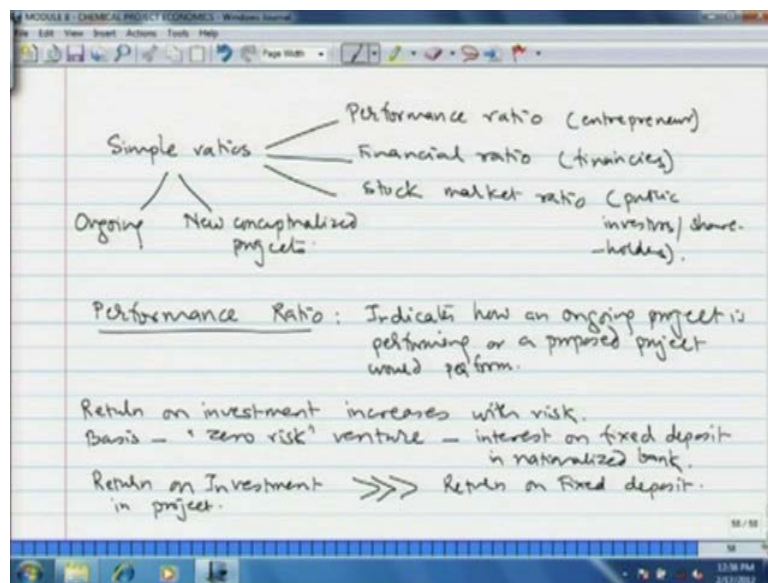 MODULE 8 - CHEMICAL PROJECT ECONOMICS - Windows Journal
File Edit View Insert Actions Tools Help
Page Width
Simple ratios
Performance ratio (entrepreneur)
Financial ratio (financies)
Stock market ratio (public
investors / share-
-holders).
Ongoing New conceptualized
projects.
Performance Ratio : Indicates how an ongoing project is
performing or a proposed project
would perform.
Return on investment increases with risk.
Basis - "zero risk" venture - interest on fixed deposit
in nationalized bank.
Return on Investment >>> Return on Fixed deposit.
in project.
58 / 58
58
12:56 PM
2/17/2012